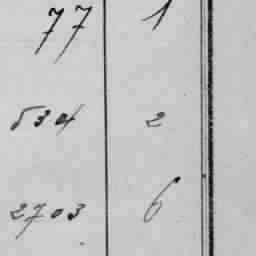 77 1
534 2
2703 6